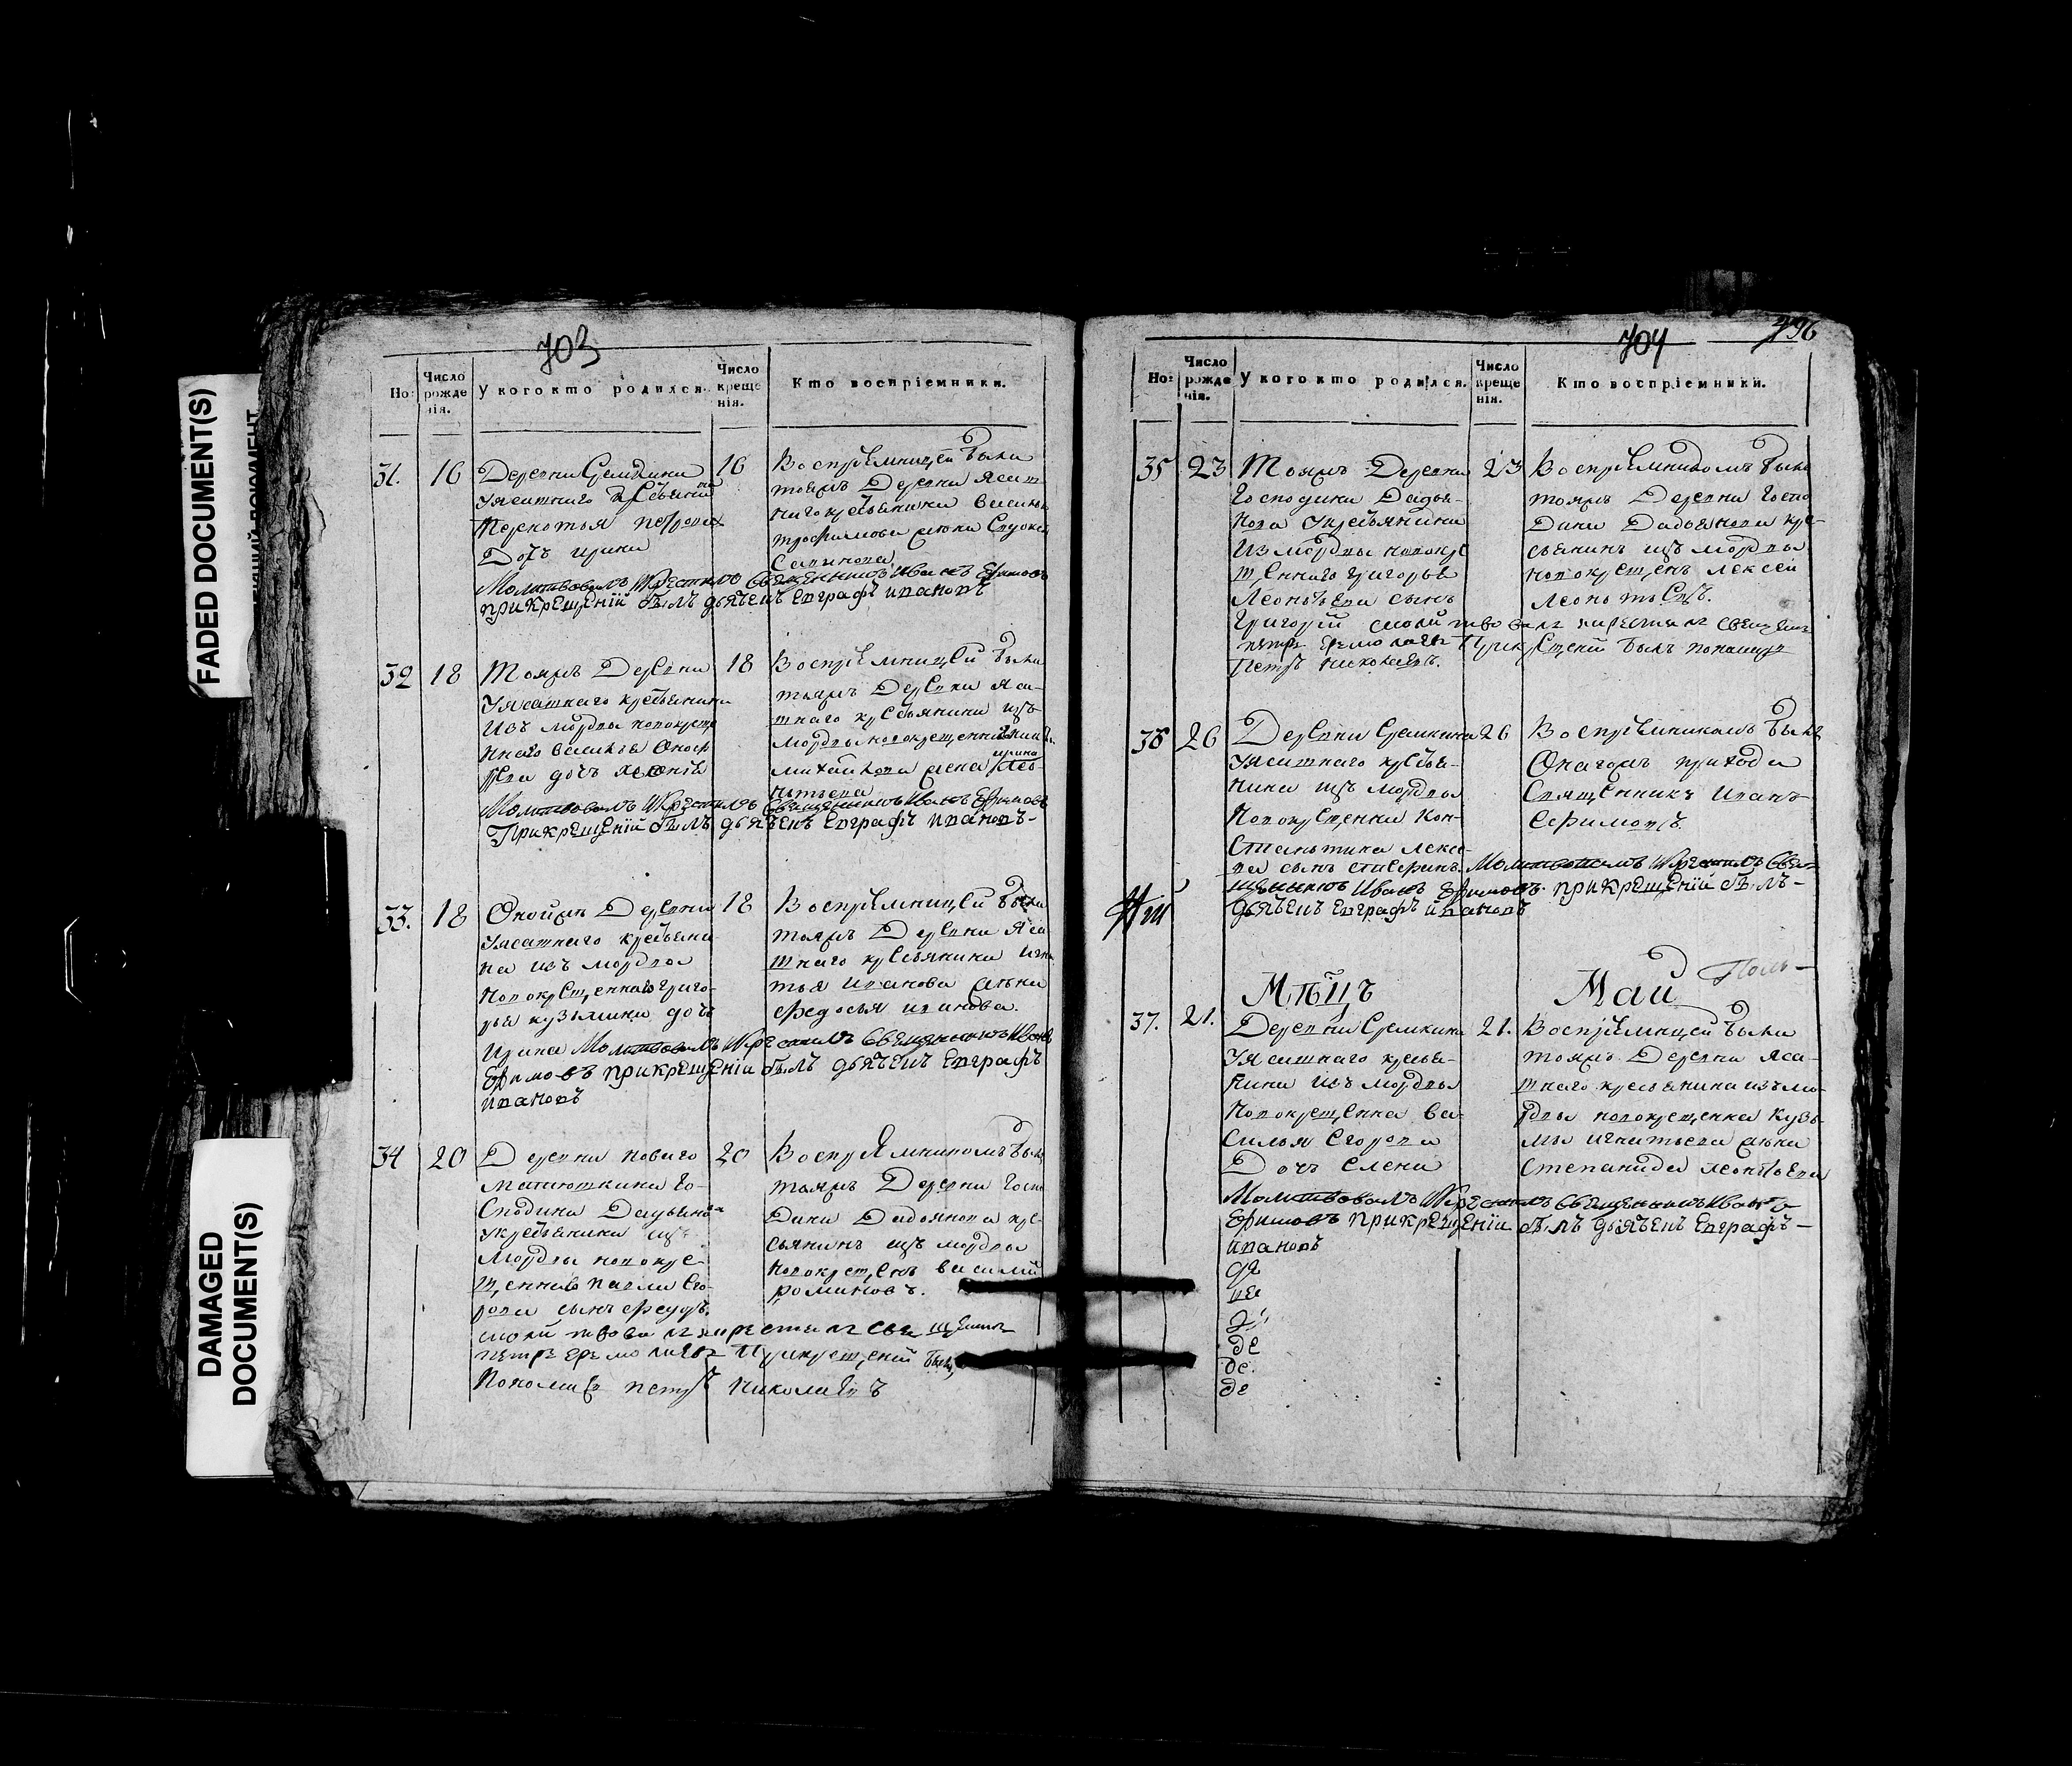 FADED DOCUMENT(S)
DAMAGED
DOCUMENT(S)
703
Но:
Число
рожде
нія.
У кого кто родился.
Число
креще
нія.
Кто воспріемники.
31.
16
Деревни Семкини
Уясашнаго крестьянина
Дочь ирина
16
Воспріемницей была
тояжъ Деревни ясаш
наго крестьянина василья
трофимова жена Евдокея
Савинова
Молитвовалъ Икрестилъ Священникъ Иванъ Ефимовъ
прикрещеніи былъ дьячекъ Евграфъ ивановъ
32
18
Тояжъ Деревни
Уясашнаго крестьянина
Изъ мордвы новокреще
ннаго василья
дочь
18
Воспріемницей была
тояжъ Деревни яса-
шнаго крестьянина изъ
мордвы новокрещенна
михайлова жена ирина
Молитвовалъ Икрестилъ Священникъ Иванъ Ефимовъ
Прикрещеніи былъ дьячекъ Евграфъ ивановъ-
33.
18
Онойжъ Деревни
Уясашнаго крестьяни
на изъ мордвы
новокрещеннаго григо-
рья кузьмина дочь
Ирина
18
Воспріемницей была
тояжъ Деревни яса
шнаго крестьянина игна
тья иванова жена
Федосья иванова.
Молитвовалъ Икрестилъ Священникъ Иванъ
Ефимовъ прикрещеніи былъ дьячекъ Евграфъ
ивановъ
34
20
Деревни новаго
матюшкина го-
сподина Дадьянова
укрестьянина изъ
мордвы новокре-
щеннаго павла Его-
рова сынъ Федоръ.
20
Воспріемникомъ былъ
тояжъ Деревни госпо
дина Дадьянова кре-
стьянинъ изъ мордвы
новокрещенъ василий
романовъ.
молитвовалъ икрестилъ священникъ
петръ ермолаевъ Прикрещеніи былъ
Пономарь петръ николаевъ
704
496
Но:
Число
рожде
нія.
У кого кто родился.
Число
креще
нія.
Кто воспріемники.
35
23
Тояжъ Деревни
Господина Дадья-
нова Укрестьянина
Из мордвы новокре
щеннаго григорья
Леонтьева сынъ
Григорій
23
Воспріемникомъ былъ
тояжъ Деревни госпо
дина Дадьянова кре-
стьянинъ изъ мордвы
новокрещенъ Алексей
Леонтьевъ.
молитвовалъ икрестилъ священникъ
петръ ермолаевъ Прикрещеніи былъ пономарь
Петръ николаевъ.
36
26
Деревни Семкина
Уясашнаго крестья-
нина изъ мордвы
Новокрещенна Кон-
стантина Алексе-
ва сынъ
26
Воспріемникомъ былъ
Онагожъ прихода
Священникъ Иванъ
Ефимовъ.
Молитвовалъ Икрестилъ Свя-
щенникъ Иванъ Ефимовъ прикрещеніи былъ-
дьячекъ Евграфъ ивановъ
Мѣцъ
Май
37.
21.
Деревни Семкина
Уясашнаго крестья-
нина изъ мордвы
Новокрещенна Ва-
силья Егорова
Дочь Елена
21.
Воспріемницей была
тояжъ Деревни яса-
шнаго крестьянина изъ мо-
рдвы новокрещенна Кузь-
мы игнатьева жена
Степанида леонтьева
Молитвовалъ Икрестилъ священникъ Иванъ
Ефимовъ прикрещеніи былъ дьячекъ Евграфъ-
ивановъ
де
де.
де